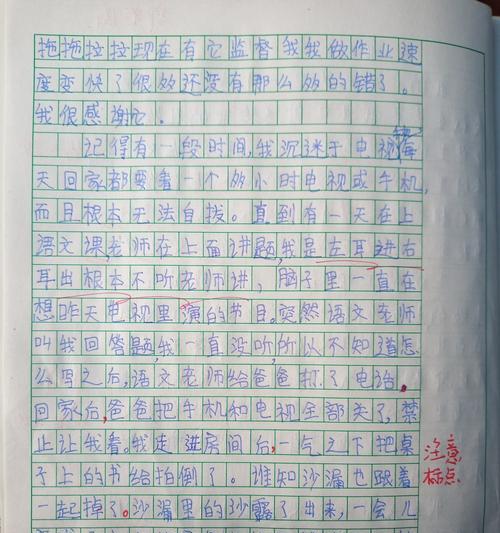 拖拖拉拉现在有它监督我我做作业速
度变快了很多还没有那么多的错了。
我很感谢它。
记得有一段时间,我沉迷于电视每
天回家都要看一个多小时电视或手机,
而且根本无法自拨。直到有一天在上
语文课,老师在上面讲题,我是左耳进右
耳出根本不听老师讲,脑子里一直在
想昨天电视里演的节目。突然语文老师
叫我回答题,我一直没听,所以不知道怎
么写之后,语文老师给爸爸打了电话。
回家后,爸爸把手机和电视全部关了,禁
止让我看。我走进房间后,一气之下把桌
子上的书给拍倒了。谁知沙漏也跟着
一起掉了。沙漏里的沙露了出来,一会儿
注意
标点